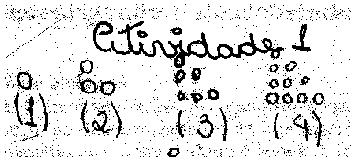 Atividade 1
(1) (2) (3) (4)